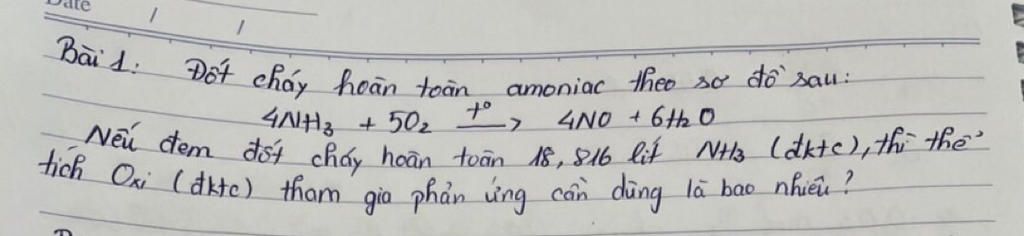 Date / /
Bài 1: Đốt cháy hoàn toàn amoniac theo sơ đồ sau:
4NH₃ + 5O₂ –t°→ 4NO + 6H₂O
Nếu đem đốt cháy hoàn toàn 18,816 lít NH₃ (đktc), thì thể
tích Oxi (đktc) tham gia phản ứng cần dùng là bao nhiêu?